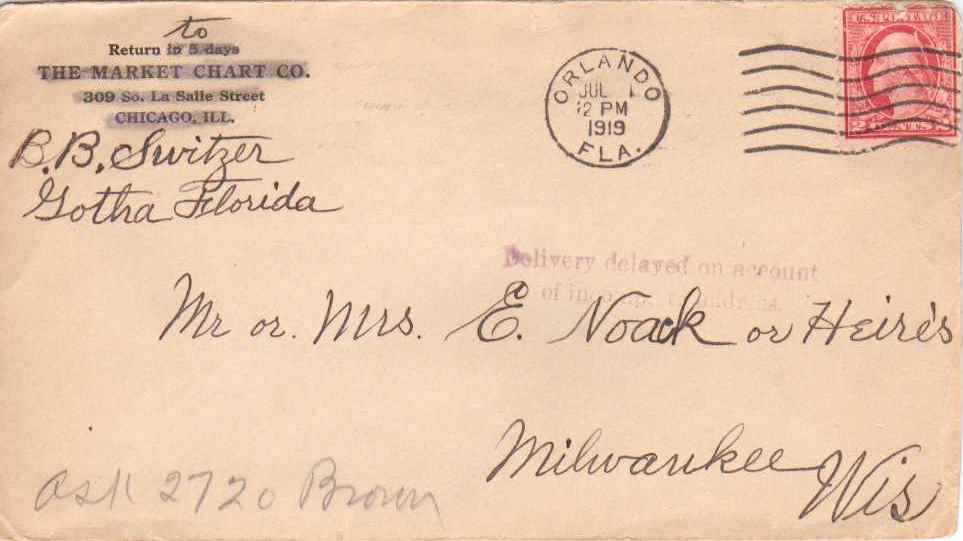 to
Return in 5 days
THE MARKET CHART CO.
309 So. La Salle Street
CHICAGO, ILL.
B. B. Switzer
Gotha Florida
ORLANDO
JUL 1
12 PM
1919
FLA.
U.S. POSTAGE
2 CENTS 2
Delivery delayed on account
of
Mr or. Mrs. E. Noack or Heire's
Milwaukee Wis
Ask 2720 Brown